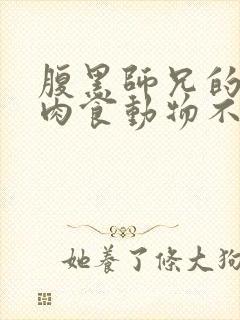 腹黑師兄的
肉食動物不
她養了條大狗